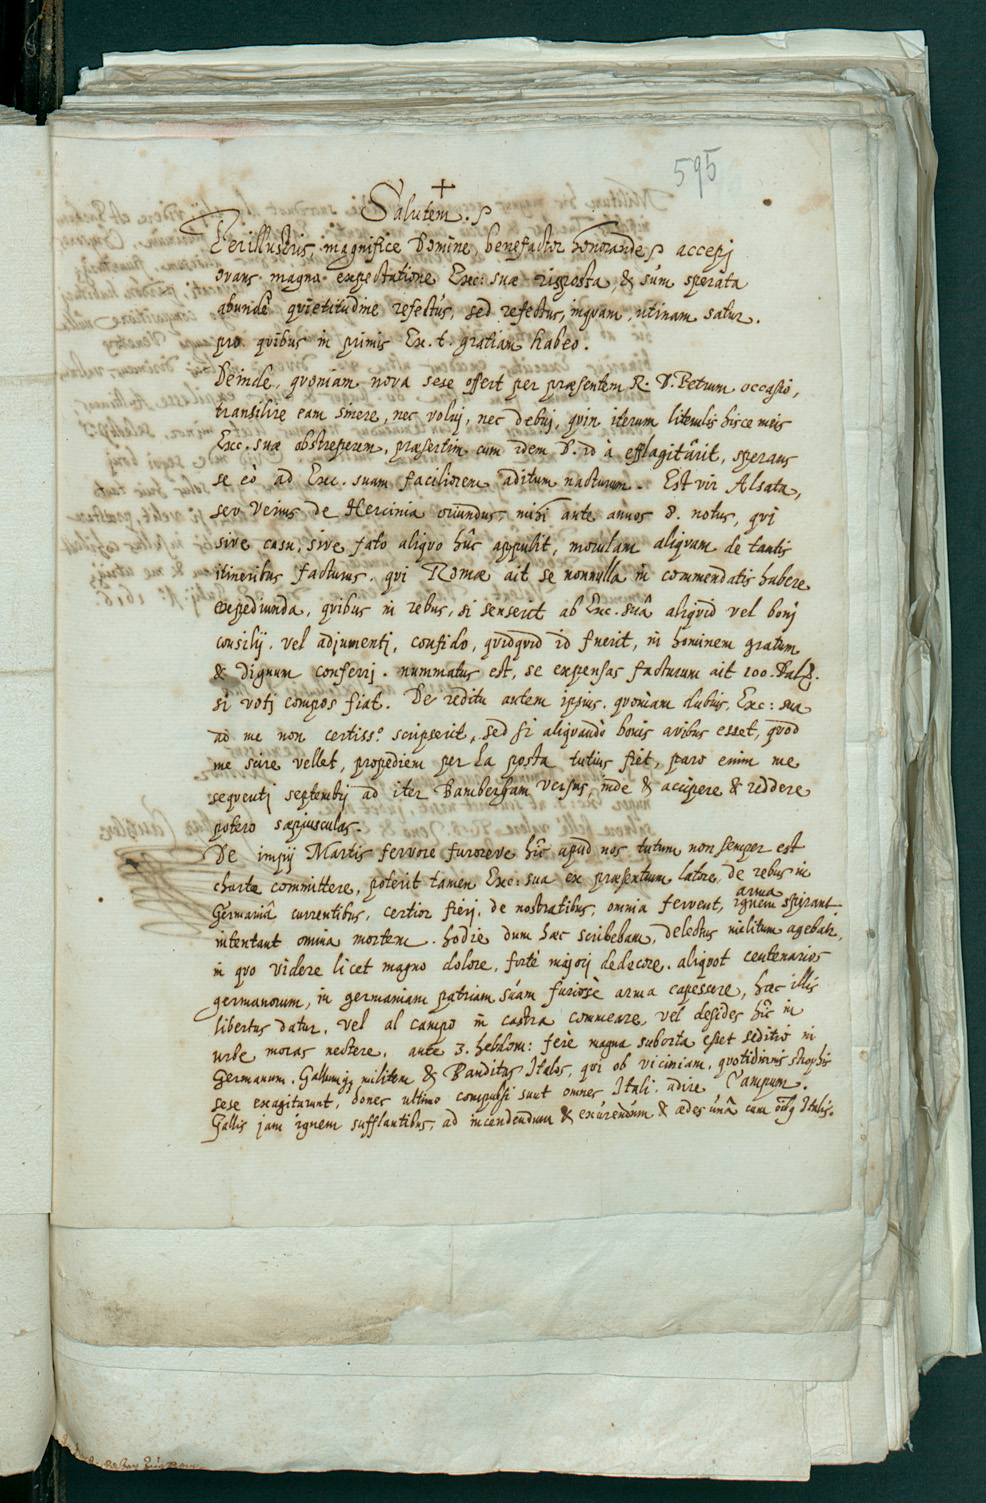 595
+
Salutem. P
Perillustris, magnifice Domine, benefactor honorande P accepj
ovans magna expectatione Exc: suæ risposta, & sum sperata
abundè quietitudine refectus, sed refectus, inquam, utinam satur.
pro quibus in primis Ex. t. gratiam habeo.
Deinde, quoniam nova sese offert per præsentem R. D. Petrum occasio,
transilire eam sinere, nec voluj, nec debuj, quin iterum literulis hisce meis
Exc. suæ obstreperem, præsertim cum idem D. id à efflagitârit, sperans
se eò ad Exc. suam faciliorem aditum nacturum. Est vir Alsata,
seu verius de Hercinia oriundus, mihi ante annos 8. notus, qui
sive casu, sive fato aliquo hûc appulit, morulam aliquam de tantis
itineribus facturus. qui Romæ ait se nonnulla in commendatis habere
expediunda, quibus in rebus, si senserit ab Exc. suâ aliquid vel bonj
consilij, vel adjumentj, confido, quidquid id fuerit, in hominem gratum
& dignum conferrj. nummatus est, se expensas facturum ait 100. Dal
si votj compos fiat. De reditu autem ipsius, quoniam dubius, Exc: sua
ad me non certiss.o scripserit, sed si aliquandò bonis avibus esset, quod
me scire vellet, propediem per la posta tutius fiet, paro enim me
sequentj septembrj ad iter Bambergam versus, inde & accipere & reddere
potero sæpiusculas.
De impij Martis fervore furoreve hîc apud nos tutum non semper est
chartæ committere, poterit tamen Exc: sua ex præsentium latore, de rebus in
Germaniâ currentibus, certior fierj. de nostratibus, omnia fervent, ignem spirant
arma
intentant omina mortem. hodie dum hæc scribebam, delectus militum agebatr,
in quo videre licet magno dolore, fortè majorj dedecore, aliquot centenarios
germanorum, in germaniam patriam suam furiosè arma capescere, hæc illis
libertas datur, vel al campo in castra commeare, vel desides hîc in
urbe moras nectere. ante 3. hebdom: ferè magna suborta esset seditio in
Germanum. Gallumq; militem & Banditus Italos, qui ob viciniam, quotidianis strophis
sese exagitarunt, donec ultimo compulsi sunt omnes Itali adire Campum.
Gallis jam ignem sufflantibus, ad incendendum & exurendum & ædes unâ cum Italis.